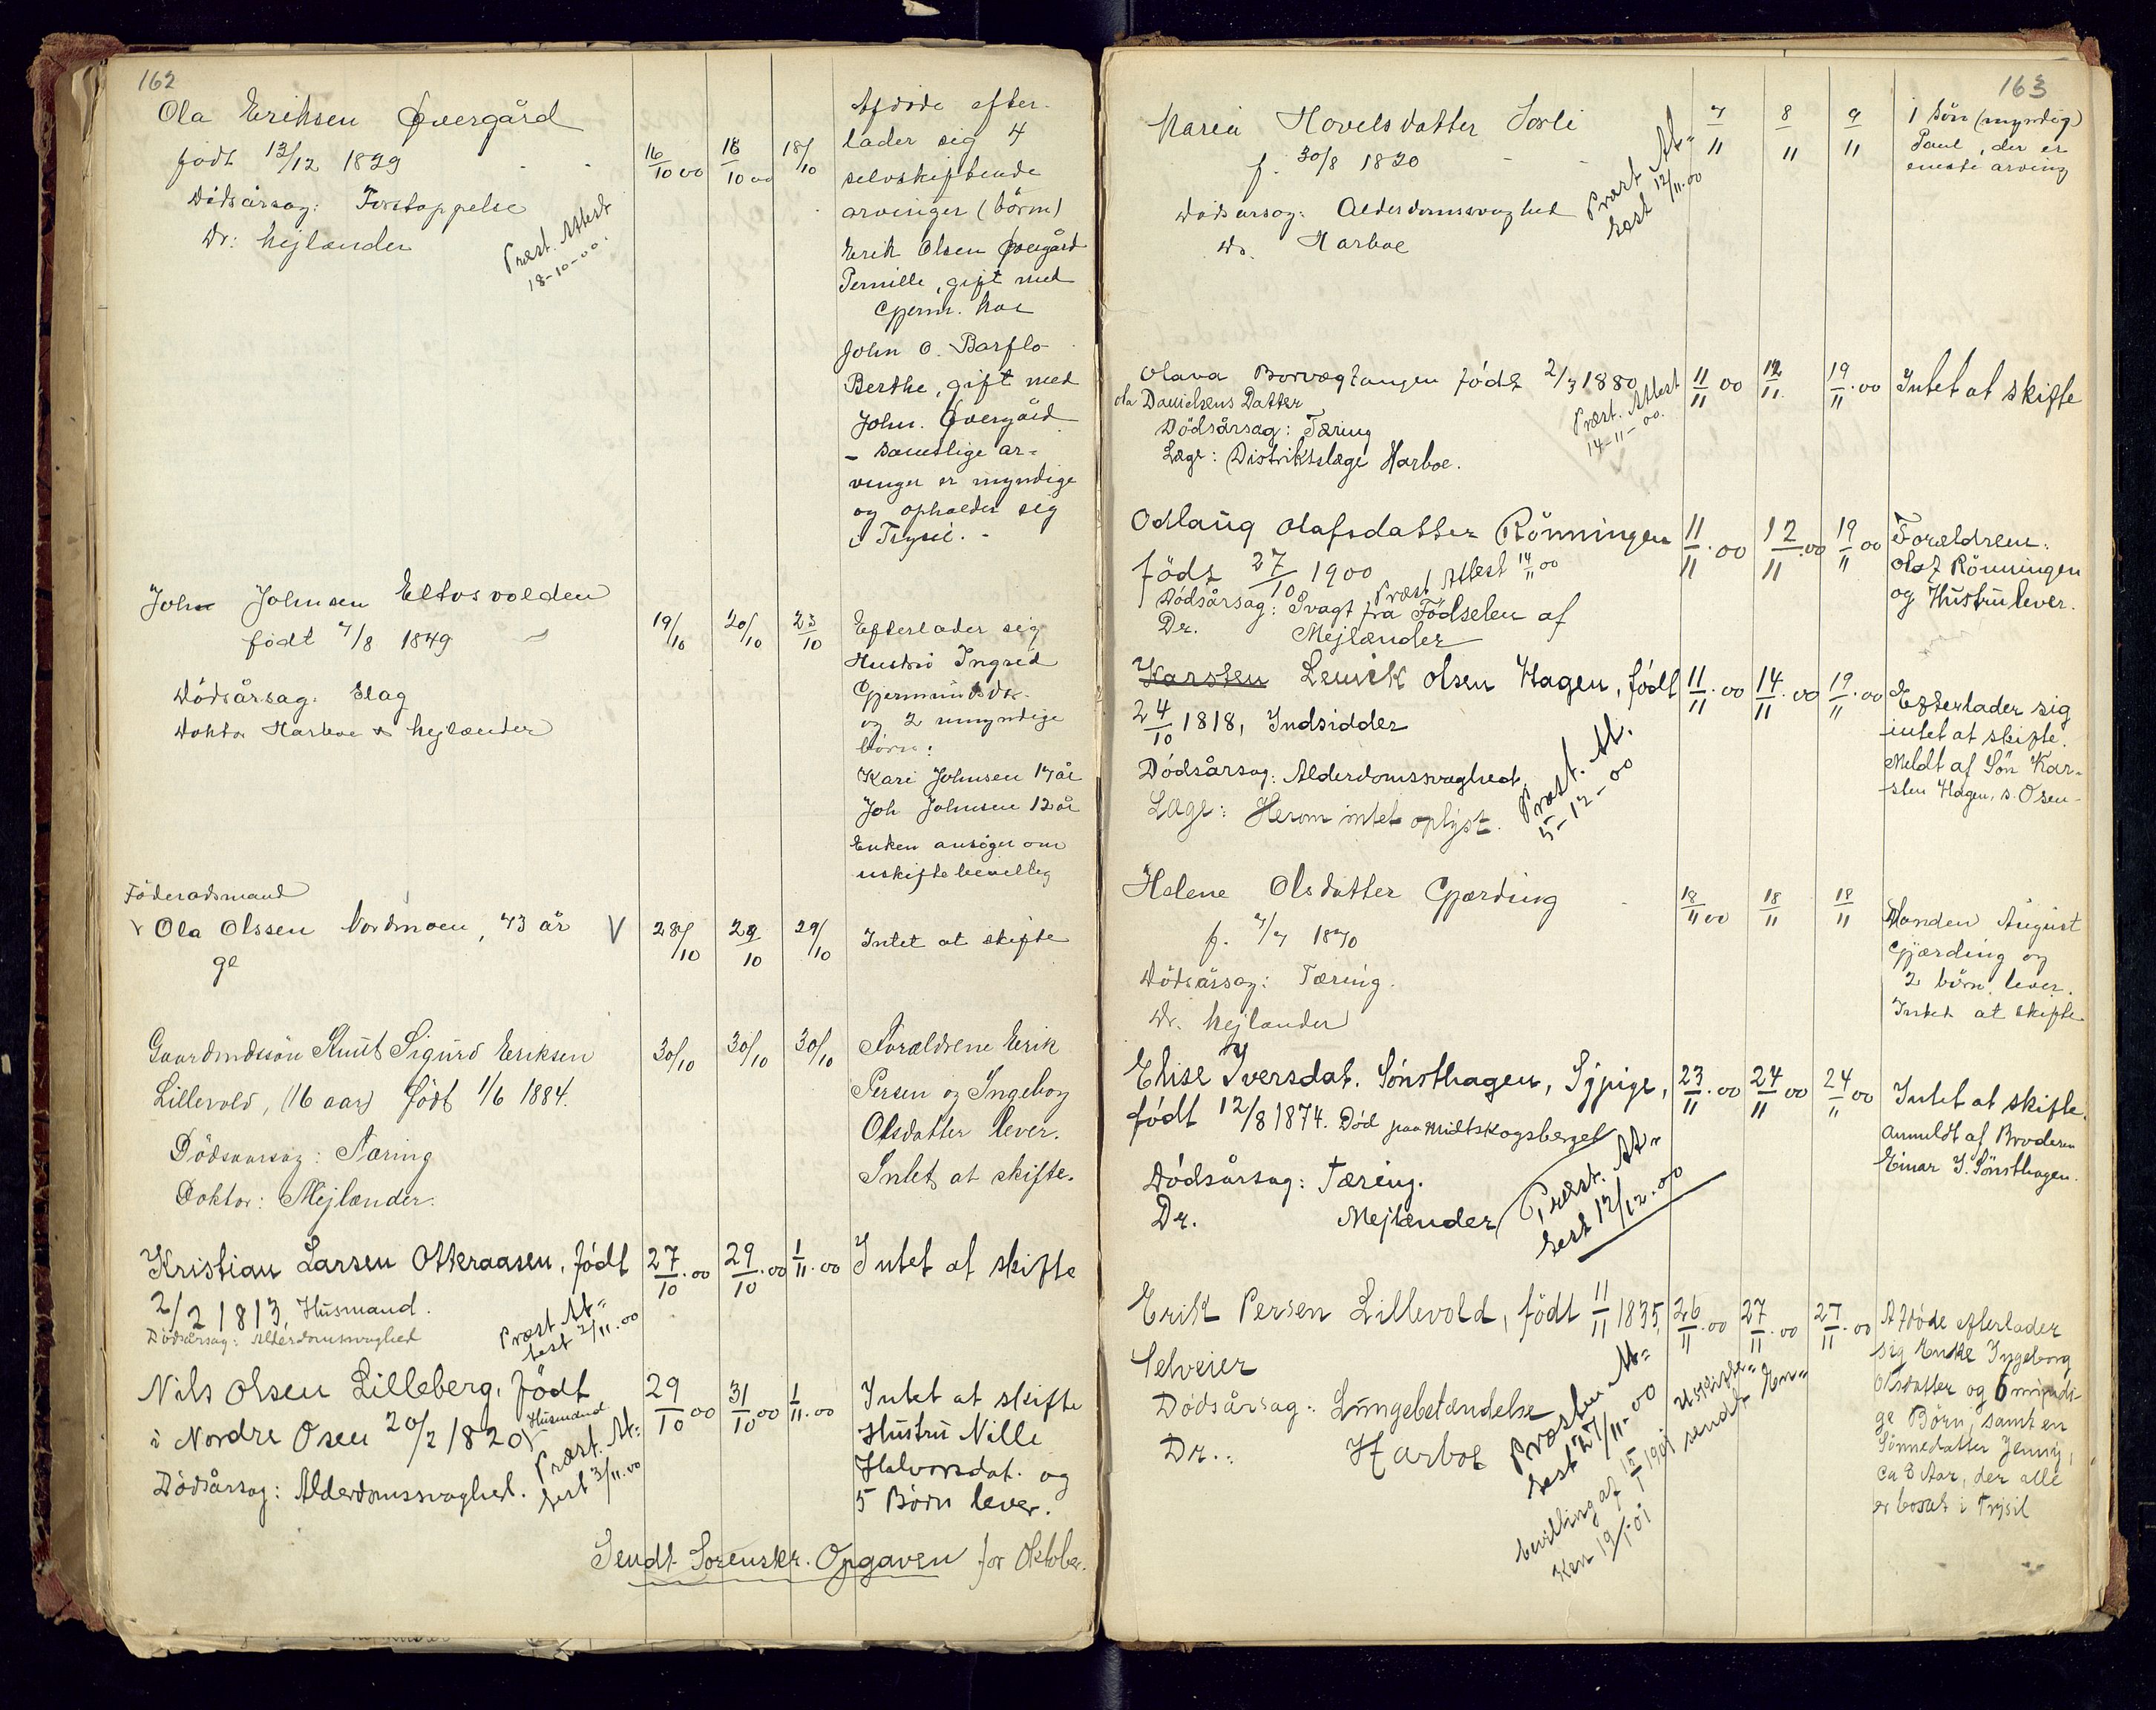 162
Ola Eriksen Øvergård
født 13/12 1829
Dödsårsag: Forstoppelse
Dr: Mejlænder
Præst. Attest
18-10-00.
16/10 00 18/10 00 18/10
Afdöde efter-
lader sig 4
selvskiftende
arvinger (börn)
Erik Olsen Øvergård
Pernille, gift med
Gjerm. Moe
John O. Barflo
Berthe, gift med
John. Øvergård
- Samtlige ar-
vinger er myndige
og opholder sig
i Trysil. -
John Johnsen Eltvsvolden
født 7/8 1849
Dödsårsag: Slag
Doktor Harboe & Mejlænder
19/10 20/10 23/10
Efterlader sig
Hustru Ingrid
Gjermundsdr.
og 2 umyndige
börn:
Kari Johnsen 17 år
Joh Johnsen 12 år
Enken ansöger om
uskiftebevilling
Föderadsmand
V Ola Olssen Nordmoen, 73 år V
ge
28/10 29/10 29/10
Intet at skifte
Gaardmdssön Knut Sigurd Eriksen
Lillevold, (16 aar) födt 1/6 1884.
Dödsaarsag: Tæring
Doktor: Mejlænder.
30/10 30/10 30/10
Forældrene Erik
Persen og Ingeborg
Olsdatter lever.
Intet at skifte.
Kristian Larsen Otteraasen, födt
2/2 1813, Husmand.
Dödsårsag: Alderdomssvaghed
Præst At=
test 2/11.00
27/10.00 29/10.00 1/11.00
Intet at skifte
Nils Olsen Lilleberg, födt
i Nordre Osen 20/2 1820, Husmand.
Dödsårsag: Alderdomssvaghed.
Præst. At=
test 3/11.00
29/10 00 31/10 00 1/11.00
Intet at skifte
Hustru Nille
Halvorsdat. og
5 Börn lever.
Sendt Sorenskr. Opgaven for Oktober.
163
Maria Hovelsdatter Sorli
f. 30/8 1820
Dödsårsag: Alderdomssvaghed
Dr. Harboe
Præst At=
test 12/11.00
7/11 8/11 9/11
1 Sön (myndig)
Paul, der er
eneste arving
Olava Borvægtangen födt 2/3 1880
Ola Danielsens Datter
Dödsårsag: Tæring
Læge: Distriktslæge Harboe.
Præst. Attest
14-11-00.
11/11 00 12/11. 19/11.00
Intet at skifte
Odlaug Olafsdatter Rönningen
födt 27/10 1900
Præst Attest 14/11 00
Dödsårsag: Svagt fra Födselen af
Dr. Mejlænder
11/11.00 12/11.00 19/11 00
Forældrene:
Olaf Rönningen
og Hustru lever.
Karsten Lenvik Olsen Hagen, födt
24/10 1818, Indsidder
Dödsårsag: Alderdomssvaghed.
Læge: Herom intet oplyst.
Præst. At.
5-12-00
11/11.00 14/11.00 19/11.00
Efterlader sig
intet at skifte.
Meldt af Sön Kar-
sten Hagen, s. Osen-
Helene Olsdatter Gjærding
f. 7/7 1870
Dödsårsag: Tæring.
Dr. Mejlænder
18/11 00 18/11 18/11
Manden August
Gjærding og
2 börn lever.
Intet at skifte
Elise Iversdat. Sönsthagen, Sypige,
födt 12/8 1874. Död paa Midtskogsberget
Dödsårsag: Tæring.
Dr. Mejlænder
Præst. At=
test 12/12.00
23/11.00 24/11 00 24/11 00
Intet at skifte.
Anmeldt af Broderen
Einar I. Sönsthagen.
Erik Persen Lillevold, födt 11/11 1835,
Selveier
Dödsårsag: Lungebetændelse
Dr.: Harboe
Præsten At=
test 27/11-00
Uskifte=
bevilling af 15/1 1901 sendt En=
ken 19/1-01
26/11.00 27/11.00 27/11.00
Afdöde efterlader
sig Enke Ingeborg
Olsdatter og 6 myndi-
ge Börn, samt en
Sönnedatter Jenny,
ca 8 Aar, der alle
er bosat i Trysil